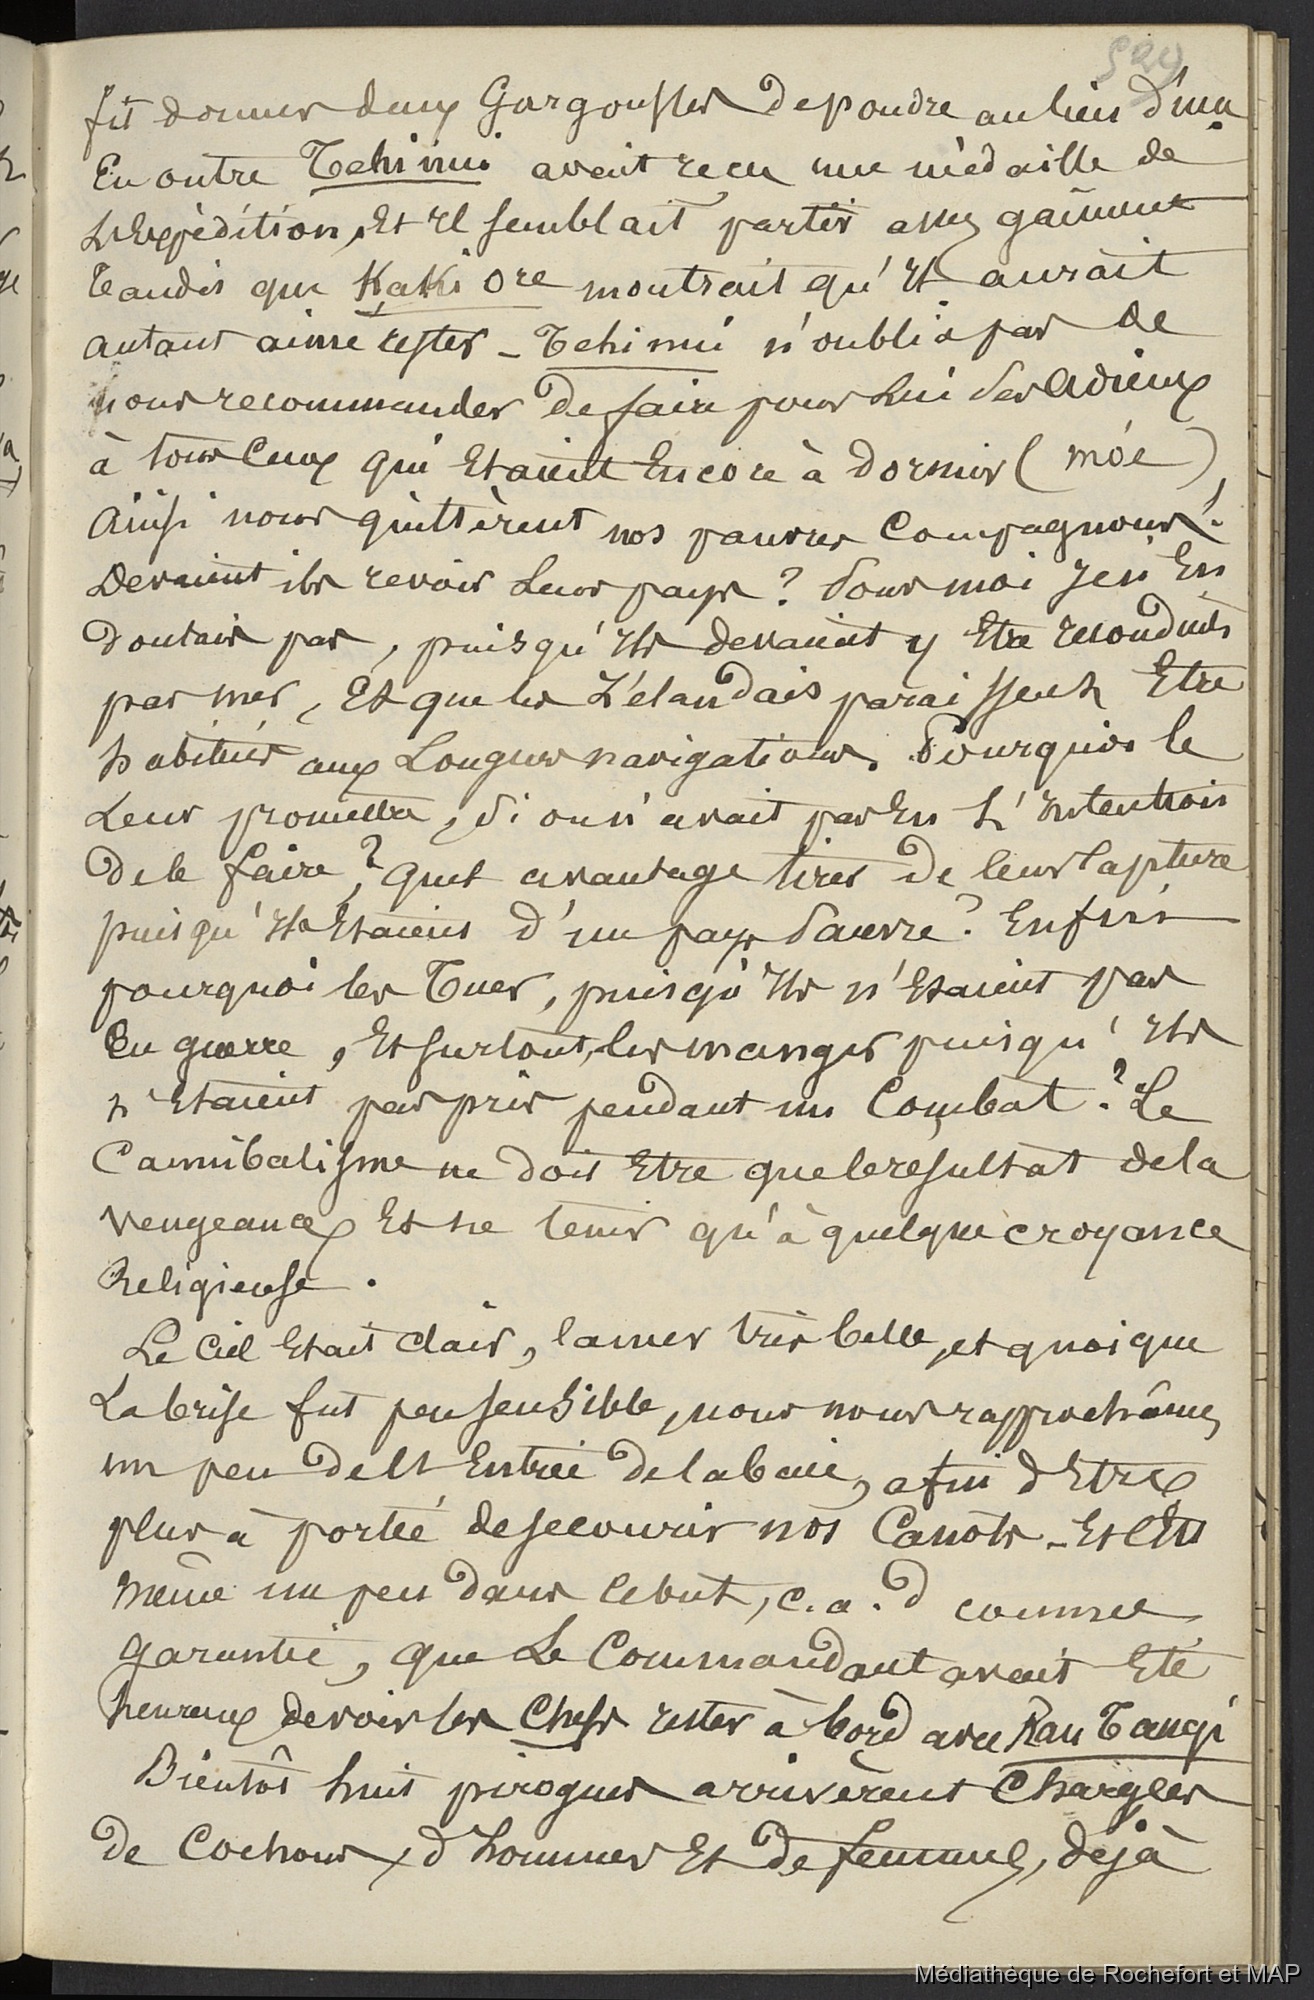 529
fit donner deux Gargousses de poudre au lieu d'une
En outre Tehi nui avait recu une médaille de
L'Expédition, Et Il semblait partir assez gaîment
tandis que Kaki ore montrait qu'Il aurait
autant aimé rester _ Tehi nui n'oublia pas de
nous recommander de faire pour Lui Ses adieux
à tous Ceux qui Etaient Encore à dormir ( móé ),
Ainsi nous quittèrent nos pauvres Compagnons!.
Devaient ils revoir Leur pays ? Pour moi Je n'En
doutais pas, puisqu'Ils devaient y Etre reconduits
par mer, Et que les Zélandais paraissent Etre
habitués aux Longues navigations. Pourquoi le
Leur promettre, Si on n'avait pas Eu L'Intention
de le faire,? quel avantage tirer de leur Capture
puisqu'Ils Etaient d'un pays Pauvre ? Enfin
pourquoi les Tuer, puisqu'Ils n'Etaient pas
En guerre, Et surtout, les manger puisqu'Ils
n'Etaient pas pris pendant un Combat ? Le
Cannibalisme ne doit Etre que le resultat de la
vengeance Et ne tenir qu'à quelque croyance
Religieuse .
Le Ciel Etait clair, la mer très belle, et quoique
La brise fut peu sensible, nous nous rapprochâmes
un peu de L'Entrée de la baie, afin d'Etre
plus à portée de secourir nos Canots _ Et Etu
même un peu dans le but, c. a. d comme
garantie, que Le Commandant avait Eté
heureux de voir les Chefs rester à bord avec Rau Tangi
Bientôt huit pirogues arrivèrent Chargées
de Cochons, d'hommes Et de femmes, déjà
Médiathèque de Rochefort et MAP